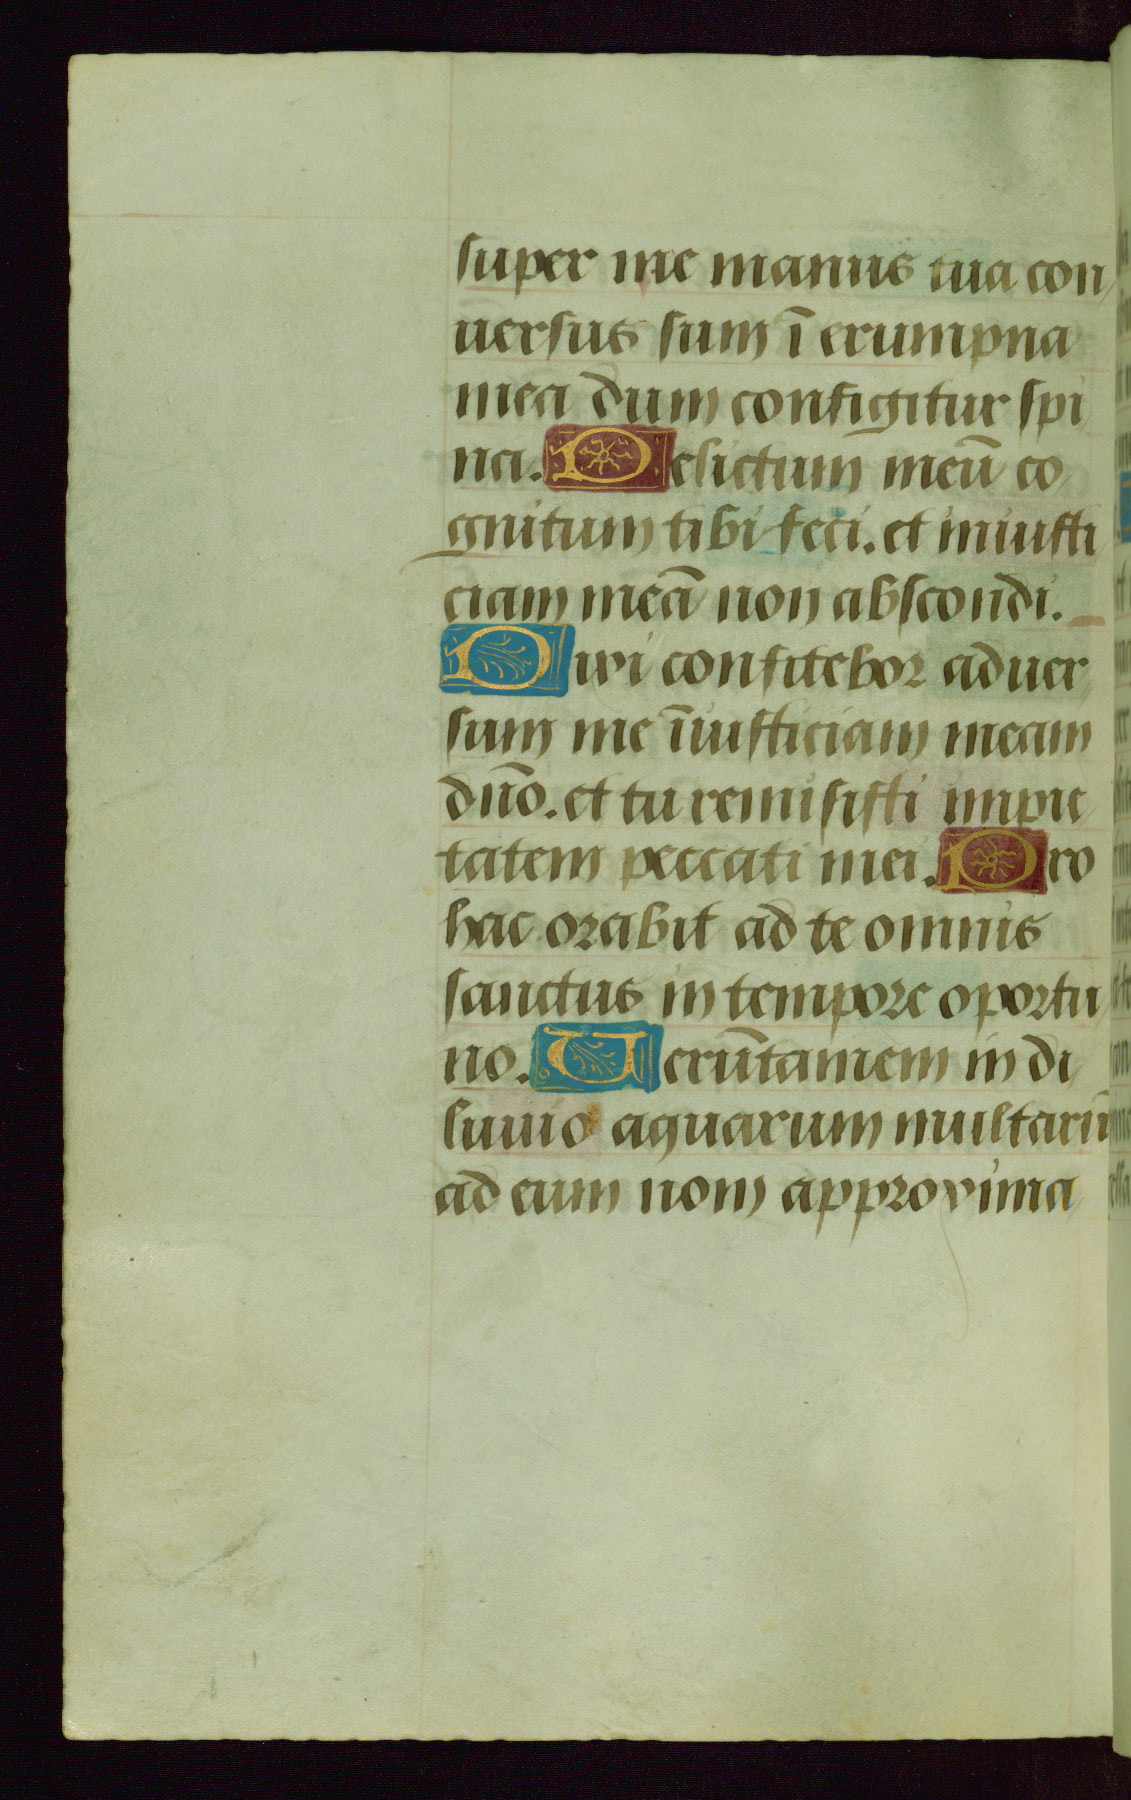 super me manus tua con
uersus sum ī erumpna
mea dum configitur spi
na. Delictum meū co
gnitum tibi feci. et iniusti
ciam meā non abscondi.
Dixi confitebor aduer
sum me īiusticiam meam
dn̄o. et tu remisisti impie
tatem peccati mei. Pro
hac orabit ad te omnis
sanctus in tempore oportu
no. Uerūtamem in di
luuio aquarum multarū
ad eum non approxima